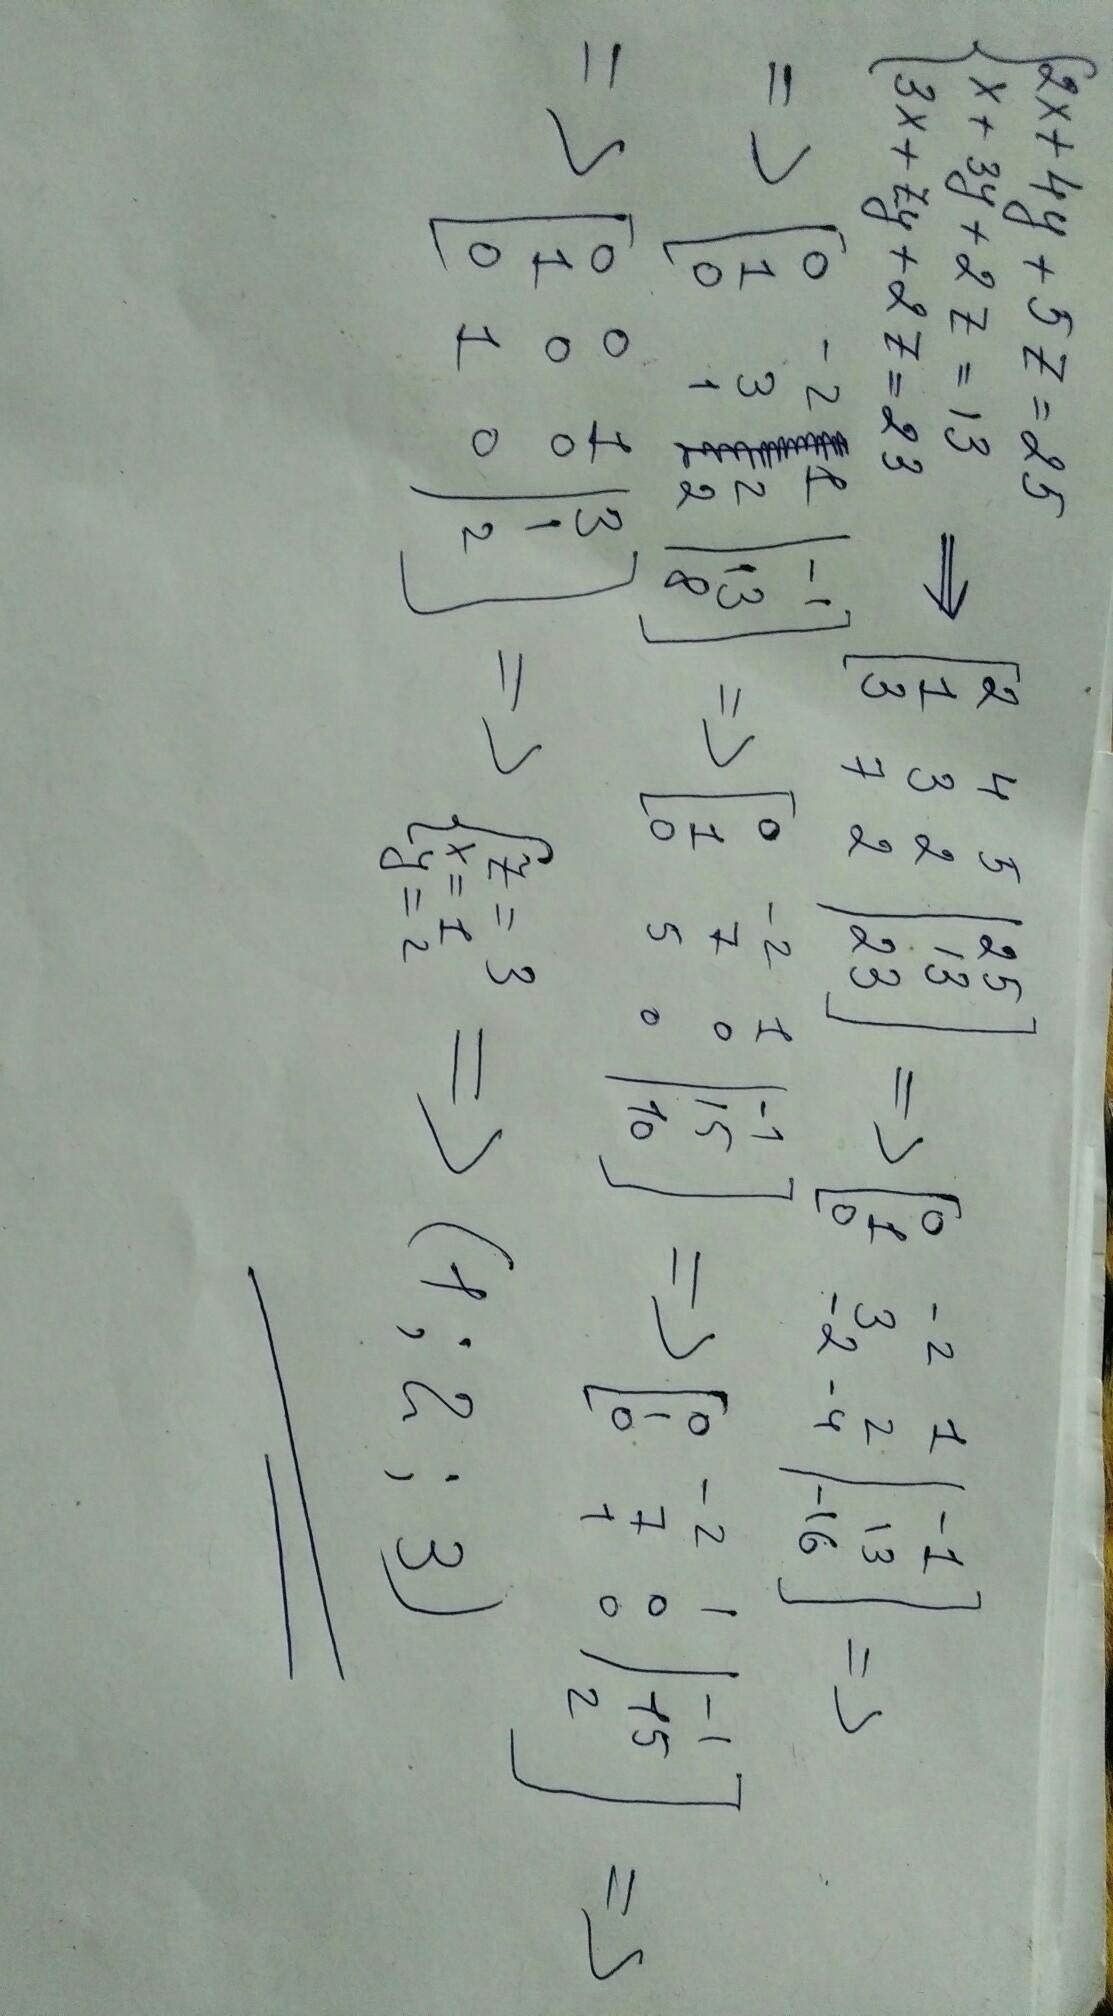 {2x+4y+5z=25
x+3y+2z=13
3x+7y+2z=23
⇒ [2 4 5 | 25
1 3 2 | 13
3 7 2 | 23]
=> [0 -2 1 | -1
1 3 2 | 13
0 -2 -4 | -16] =>
=> [0 -2 1 | -1
1 3 2 | 13
0 1 2 | 8]
=> [0 -2 1 | -1
1 7 0 | 15
0 5 0 | 10]
=> [0 -2 1 | -1
1 7 0 | 15
0 1 0 | 2] =>
=> [0 0 1 | 3
1 0 0 | 1
0 1 0 | 2]
=> {z=3
x=1
y=2
=> (1; 2; 3)